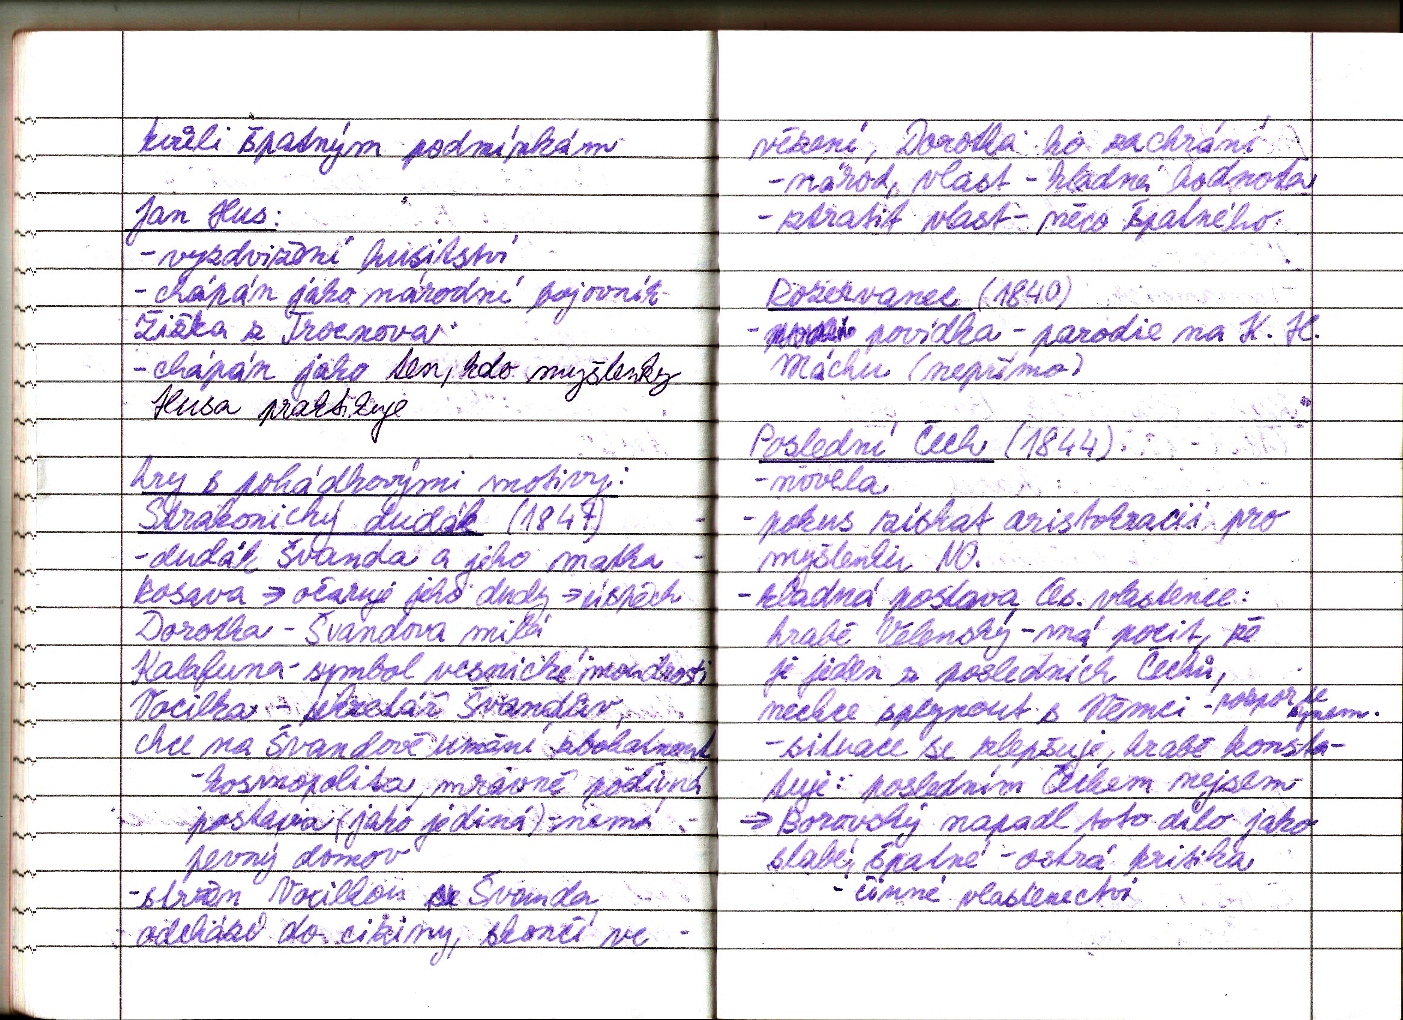 kvůli špatným podmínkám
Jan Hus:
- vyzdvižení husitství
- chápán jako národní bojovník
Žižka z Trocnova:
- chápán jako ten, kdo myšlenky
Husa praktizuje
hry s pohádkovými motivy:
Strakonický dudák (1847)
- dudák Švanda a jeho matka
Rosava → očaruje jeho dudy → úspěch
Dorotka - Švandova milá
Kalafuna - symbol vesnické moudrosti
Vocilka - Švandův,
chce na Švandově umění zbohatnout
- kosmopolita, mravně podivná
postava (jako jediná) - nemá
pevný domov
- stržen Vocilkou se Švanda
odchází do ciziny, skončí ve
vězení, Dorotka ho zachrání
- národ, vlast - kladná hodnota
- ztratit vlast - něco špatného.
Rozervanec (1840)
- povídka - parodie na K. H.
Máchu (nepřímo)
Poslední Čech (1844):
- novela
- pokus získat aristokracii pro
myšlenku NO.
- kladná postava čes. vlastence:
hrabě Vělenský - má pocit, že
je jeden z posledních Čechů,
nechce splynout s Němci - rozpor se synem.
- situace se zlepšuje, hrabě konsta-
tuje: posledním Čechem nejsem
→ Borovský napadl toto dílo jako
slabé, špatné - ostrá kritika
- činné vlastenectví